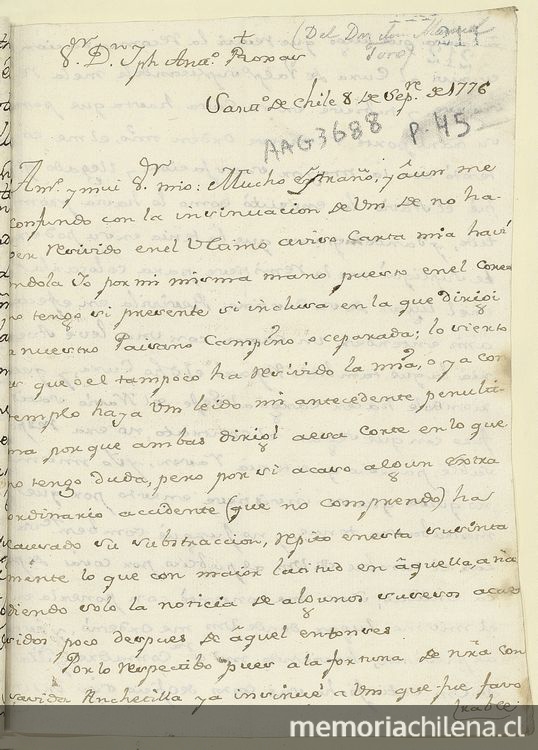 (Del Doz don Manuel
Toro)
S.r D.n Jph Ant.o Roxas
Sant.o de Chile 8 de Sep.re de 1776
AAG3688 P. 45
Am.o y mui S.r mio: Mucho estraño, y âun me
confundo con la insinuacion de Um de no ha-
ver resivido en el Ultimo aviso Carta mia havi
endola Yo por mi misma mano puesto en el Corre
no tengo si presente si inclusa en la que dirigi
a nuestro Paisano Campino o ceparada; lo siento
es que o el tampoco ha resivido la mia, o ya con
templo haya Um leido mi antecedente penulti-
ma porque ambas dirigi a esa Corte en lo que
no tengo duda, pero por si acaso algun extra
ordinario accidente (que no comprendo) ha
causado su substraccion, repito en esta susinta
mente lo que con maior latitud en âquella, aña
diendo solo la noticia de algunos susesos acae
sidos poco despues de âquel entonses.
Por lo respectibo pues a la fortuna de nra con
savida Anchecilla ya insinué a Um que fue favo
rable
memoriachilena.cl